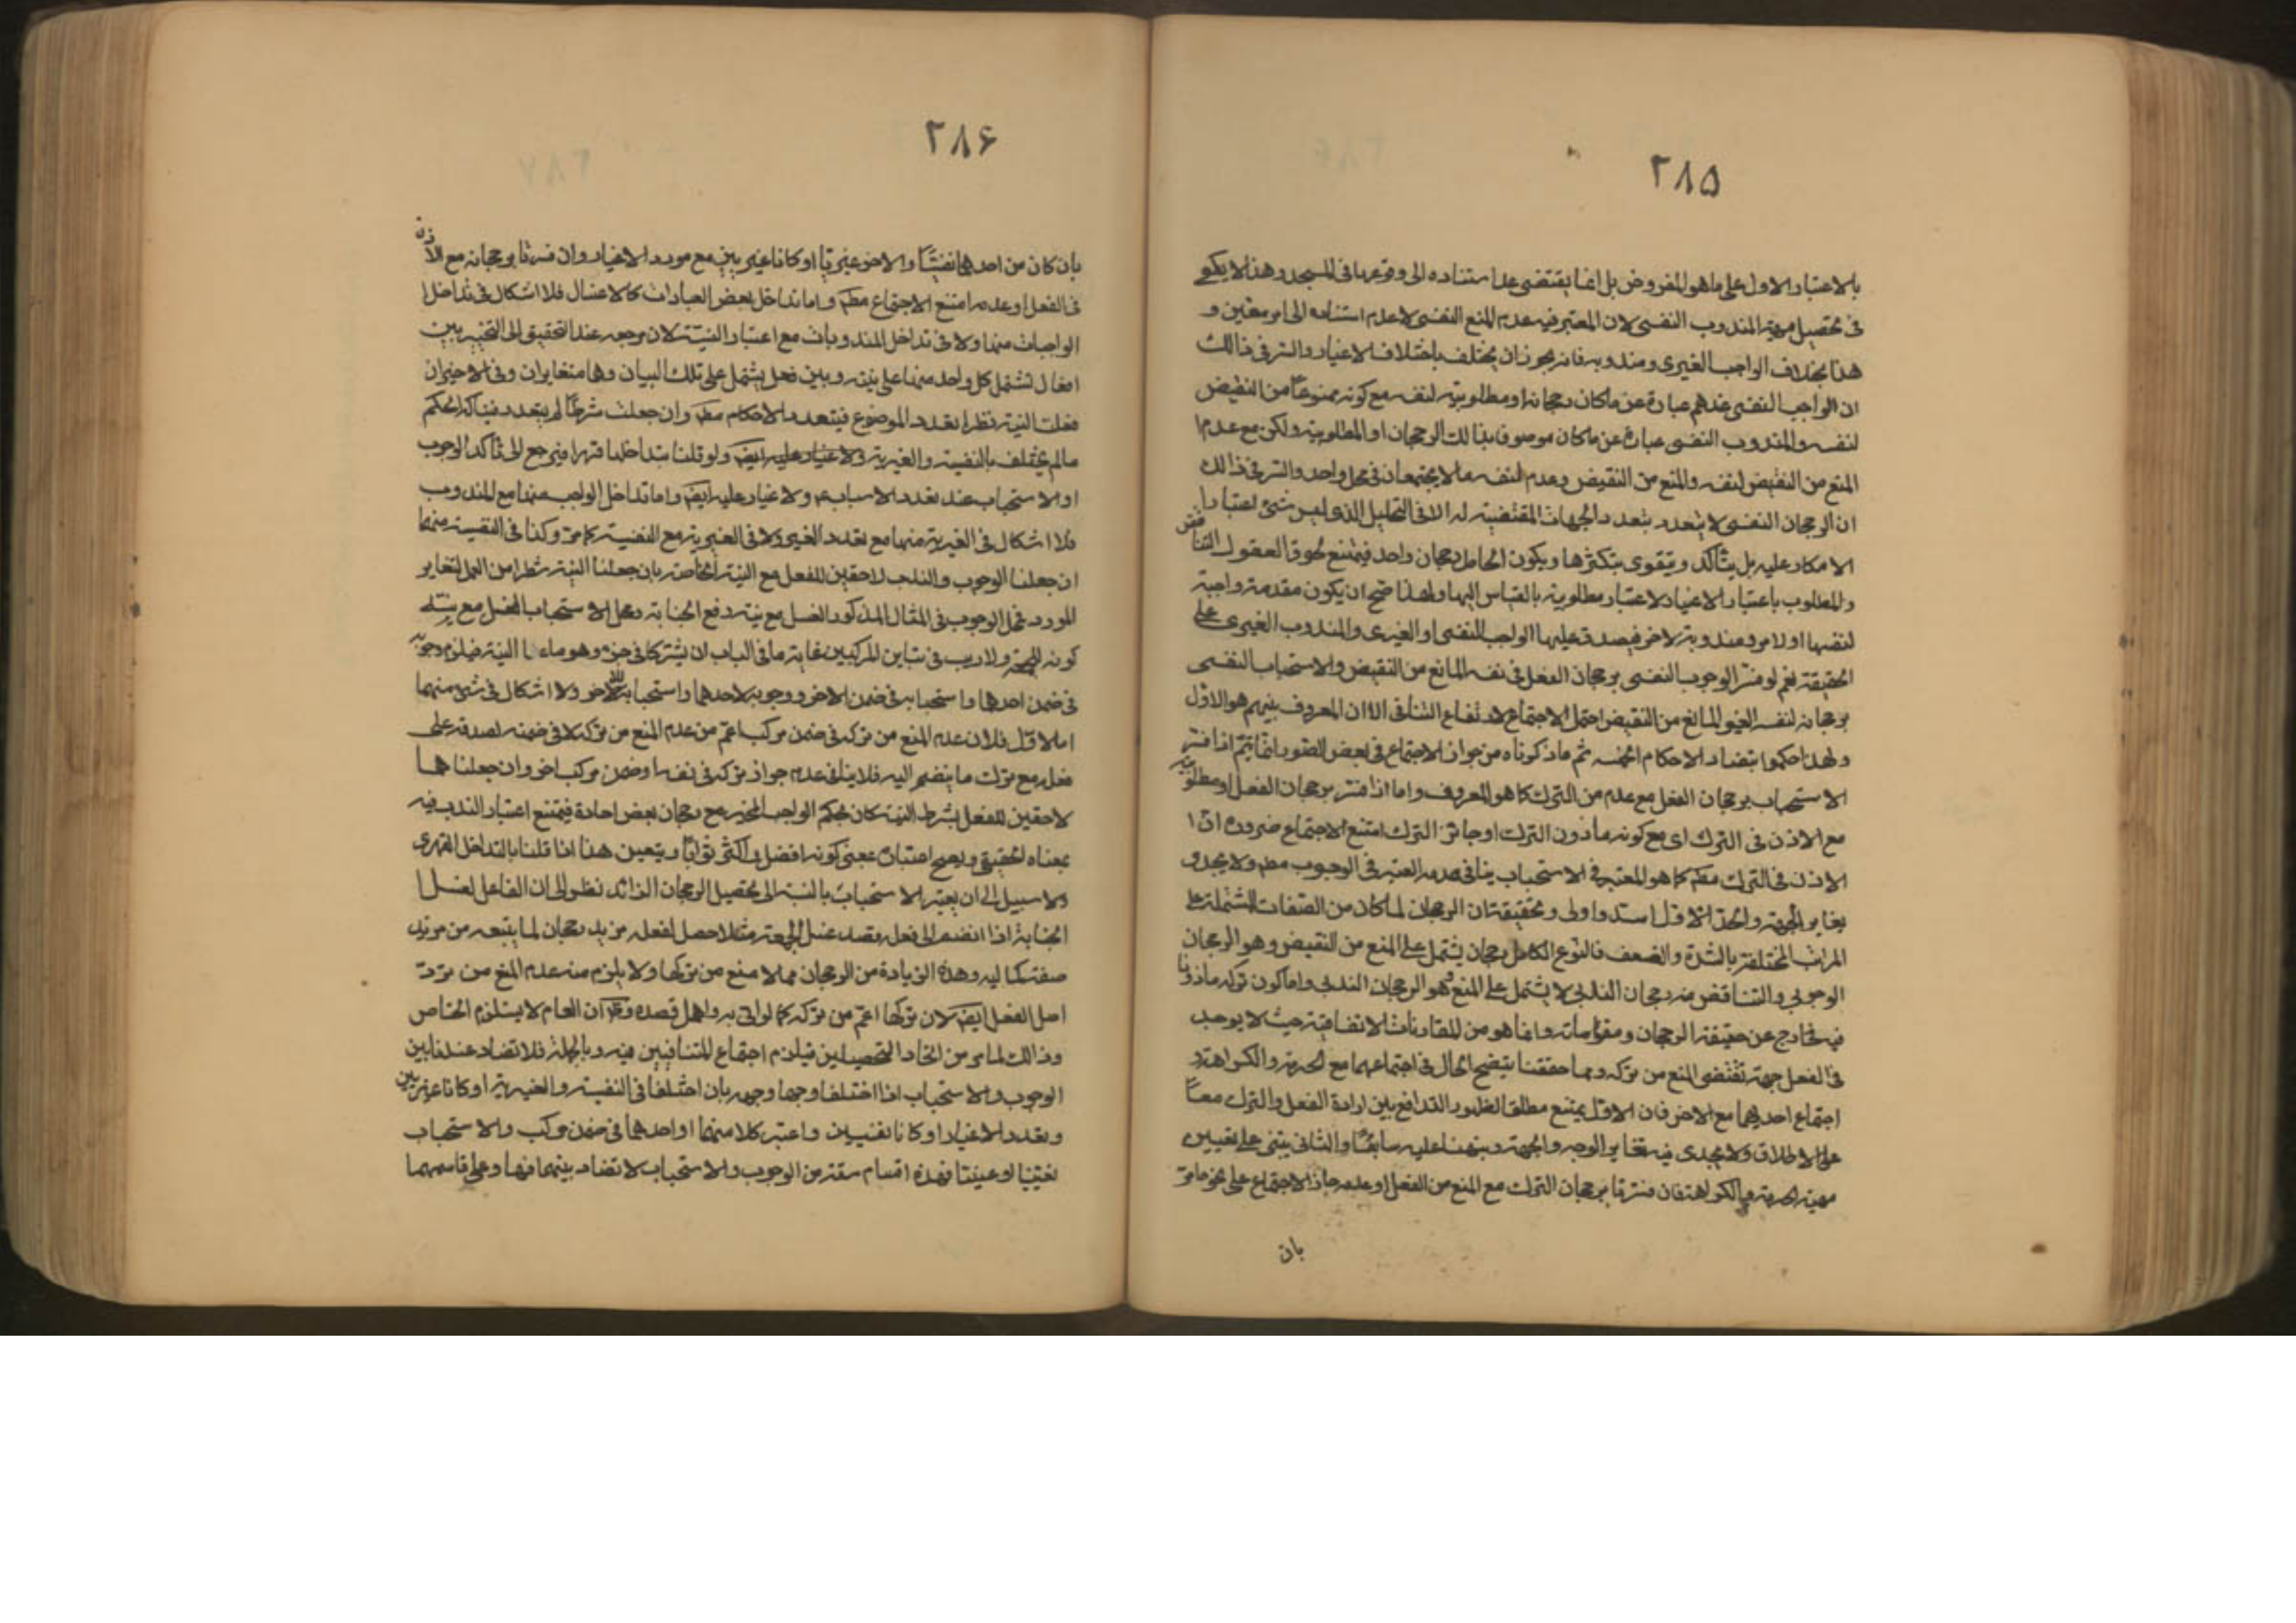 ٢٨۵
بالاعتبار الاول على ما هو المفروض بل انما يقتضى عدم استناده الى وقوعها فى المسجد وهذا لا يكفى
فى تحصيل مهية المندوب النفسى لان المعتبر فيه عدم المنع النفسى لا عدم استناده الى امر معين و
هذا بخلاف الواجب الغيرى ومندوبه فانه يجوز ان يختلف باختلاف الاغيار والسر فى ذالك
ان الواجب النفسى عندهم عبارة عن ما كان رجحانه او مطلوبيته لنفسه مع كونه ممنوعا من النقيض
لنفسه والمندوب النفسى عبارة عن ما كان موصوفا بذالك الرجحان او المطلوبية ولكن مع عدم ا
المنع من النقيض لنفسه والمنع من النقيض وعدمه لنفسه مما لا يجتمعان فى محل واحد والسر فى ذالك
ان الرجحان النفسى لا يتعدد بتعدد الجهات المقتضية له الا فى التحليل الذى ليس شئ اعتبارا
الامكار عليه بل يتأكد ويتقوى بتكثرها ويكون الحاصل رجحان واحد فيمتنع لحوق الفصول المتناقض
والمطلوب باعتبار الاغيار لاعتبار مطلوبيته بالقياس اليها ولهذا صح ان يكون مقدمة واجبة
لنفسها اولامر ومندوبة لاخر فيصدق عليها الواجب النفسى او الغيرى والمندوب الغيرى على
الحقيقة نعم لو فسر الوجوب النفسى برجحان الفعل فى نفسه المانع من النقيض والاستحباب النفسى
برجحانه لنفسه الغير المانع من النقيض احتمل الاجتماع لارتفاع التنافى الا ان المعروف بينهم هو الاول
ولهذا حكموا بتضاد الاحكام الخمسه ثم ما ذكرناه من جواز الاجتماع فى بعض الصور انما يتم اذا فسر
الاستحباب برجحان الفعل مع عدم من الترك كما هو المعروف واما اذا فسر برجحان الفعل او مطلوبيته
مع الاذن فى الترك اى مع كونه ماذون الترك او جائز الترك امتنع الاجتماع ضرورة ان ا
الاذن فى الترك مطم كما هو المعتبر فى الاستحباب ينافى عدمه المعتبر فى الوجوب مطم ولا يجدى
تغاير الجهة والحد الاول اسد واولى وتحقيقه ان الرجحان لما كان من الصفات المشتملة على
المراتب المختلفة بالشدة والضعف فالنوع الكامل رجحان يشتمل على المنع من النقيض وهو الرجحان
الوجوبى والناقص منه رجحان الندبى لا يشتمل على المنع وهو الرجحان الندبى واما كون تركه ماذونا
فيه فخارج عن حقيقة الرجحان ومقوماته وانما هو من المقارنات الاتفاقية حيث لا يوجب
فى الفعل جهة تقتضى المنع من تركه ومما حققنا يتضح الحال فى اجتماعهما مع الحرمة والكراهة و
اجتماع احديهما مع الاخر فان الاول يمتنع مطلقا لظهور التدافع بين ارادة الفعل والترك معا
على الاطلاق ولا يجدى فيه تغاير الوجه والجهة ونبهنا عليه سابقا والثانى يبتنى على تعيين
مهية الحرمة والكراهة فان فسرتا برجحان الترك مع المنع من الفعل او عدمه جاز الاجتماع على نحو ما مر
بان
٢٨۶
بان كان من احدهما نفسيا والاخر غيريا او كانا غيريين مع مورد الاغيار وان فسرتا برجحانه مع الاذن
فى الفعل او عدمه امتنع الاجتماع مطم واما تداخل بعض العبادات كالاغسال فلا اشكال فى تداخل ا
الواجبات منها ولا فى تداخل المندوبات مع اعتبار النية لان مرجعه عند التحقيق الى التخيير بين
افعال تشتمل كل واحد منها على نية وبين فعل يشتمل على تلك البيان وهما متغايران وفى الاخيران
فعلت النية نظرا بتعدد الموضوع فيتعدد الاحكام مطم وان جعلت شرطا لم يتعدد فيتاكد الحكم
ما لم يختلف بالنفسية والغيرية ولا غبار عليه ايضا ولو قلنا بتداخلها قهرا فيرجع الى تأكد الوجوب
او الاستحباب عند تعدد الاسباب ولا غبار عليه ايضا واما تداخل الواجب منها مع المندوب
فلا اشكال فى الغيرية منها مع تعدد الغير ولا فى الغيرية مع النفسية كما مر وكذا فى النفسية منهما
ان جعلنا الوجوب والندب لاحقين للفعل مع النية الخاصة بان جعلنا النية شطرا من العمل لتغاير
المورد فمحل الوجوب فى المثال المذكور الغسل مع نية رفع الجنابة ومحل الاستحباب الغسل مع نية
كونه للجمعة ولا ريب فى تباين المركبين غاية ما فى الباب ان يشتركا فى جزء وهو ماعدا النية فيلزم وجوبه
فى ضمن احدهما واستحبابه فى ضمن الاخر ووجوبه لاحدهما واستحبابه للاخر ولا اشكال فى شئ منهما
اما الاول فلان عدم المنع من تركه فى ضمن مركب اعم من عدم المنع من تركه لا فى ضمنه لصدقه على
فعله مع ترك ما ينضم اليه فلا ينافى عدم جواز تركه فى نفسه او ضمن مركب اخر وان جعلنا هما
لاحقين للفعل بشرط النية كان بحكم الواجب المخير مع رجحان بعض احاده فيمتنع اعتبار الندب فيه
بمعناه الحقيقى ويصح اعتباره بمعنى كونه افضل واكثر ثوابا ويتعين هذا اذا قلنا بالتداخل القهرى
ولا سبيل الى ان يعتبر الاستحباب بالنسبة الى تحصيل الرجحان الزائد نظرا الى ان الفاعل لغسل ا
الجنابة اذا انضم الى فعله قصد غسل الجمعة مثلا حصل لفعله مزيد رجحان لما يتبعه من مزيد
صفة كمالية وهذه الزيادة من الرجحان مما لا منع من تركها ولا يلزم منه عدم المنع من ترك
اصل الفعل ايضا لان تركها اعم من تركه كما لو اتى به واهمل قصده وقد مر ان العام لا يستلزم الخاص
وذالك لما مر من اتحاد التحصيلين فيلزم اجتماع المتنافيين فيه وبالجملة فلا تضاد عندنا بين
الوجوب والاستحباب اذا اختلفا وجها وجهة بان اختلفا فى النفسية والغيرية او كانا غيريين
وتعدد الاغيار او كانا نفسيين واعتبر كلا منهما او احدهما فى ضمن مركب والاستحباب
تعيينيا او عينيا فهذه اقسام ستة من الوجوب والاستحباب لا تضاد بينهما فيها وعلى قياسهما